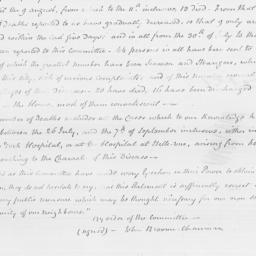 the 9 August, from to the 11th inclusive, 12 died. From that
reported to us have gradually decreased, so that 9 only are
within the last five Days. and in all from the 30th of July to the
been reported to this Committee. 44 persons in all have been sent to
of which the greatest number have been Seamen and Strangers, who
this City, sick of various complaints, and of this number
of their Diseases. 20 have died, 16 have been discharged
the House, most of them convalescent
number of deaths besides at the Cases which to our Knowledge
between the 26 July, and the 7th of September inclusive, either in
York Hospital, or at the Hospital at Belle-vue, arising from
touching to the Character of this Disease
And as this Committee have used every Exertion in their Power to obtain
they do not hesitate to say, that this Statement is sufficiently correct
any public measures which may be thought necessary for our own
of our Neighbours."
By order of the Committee
(signed) - John Broome Chairman